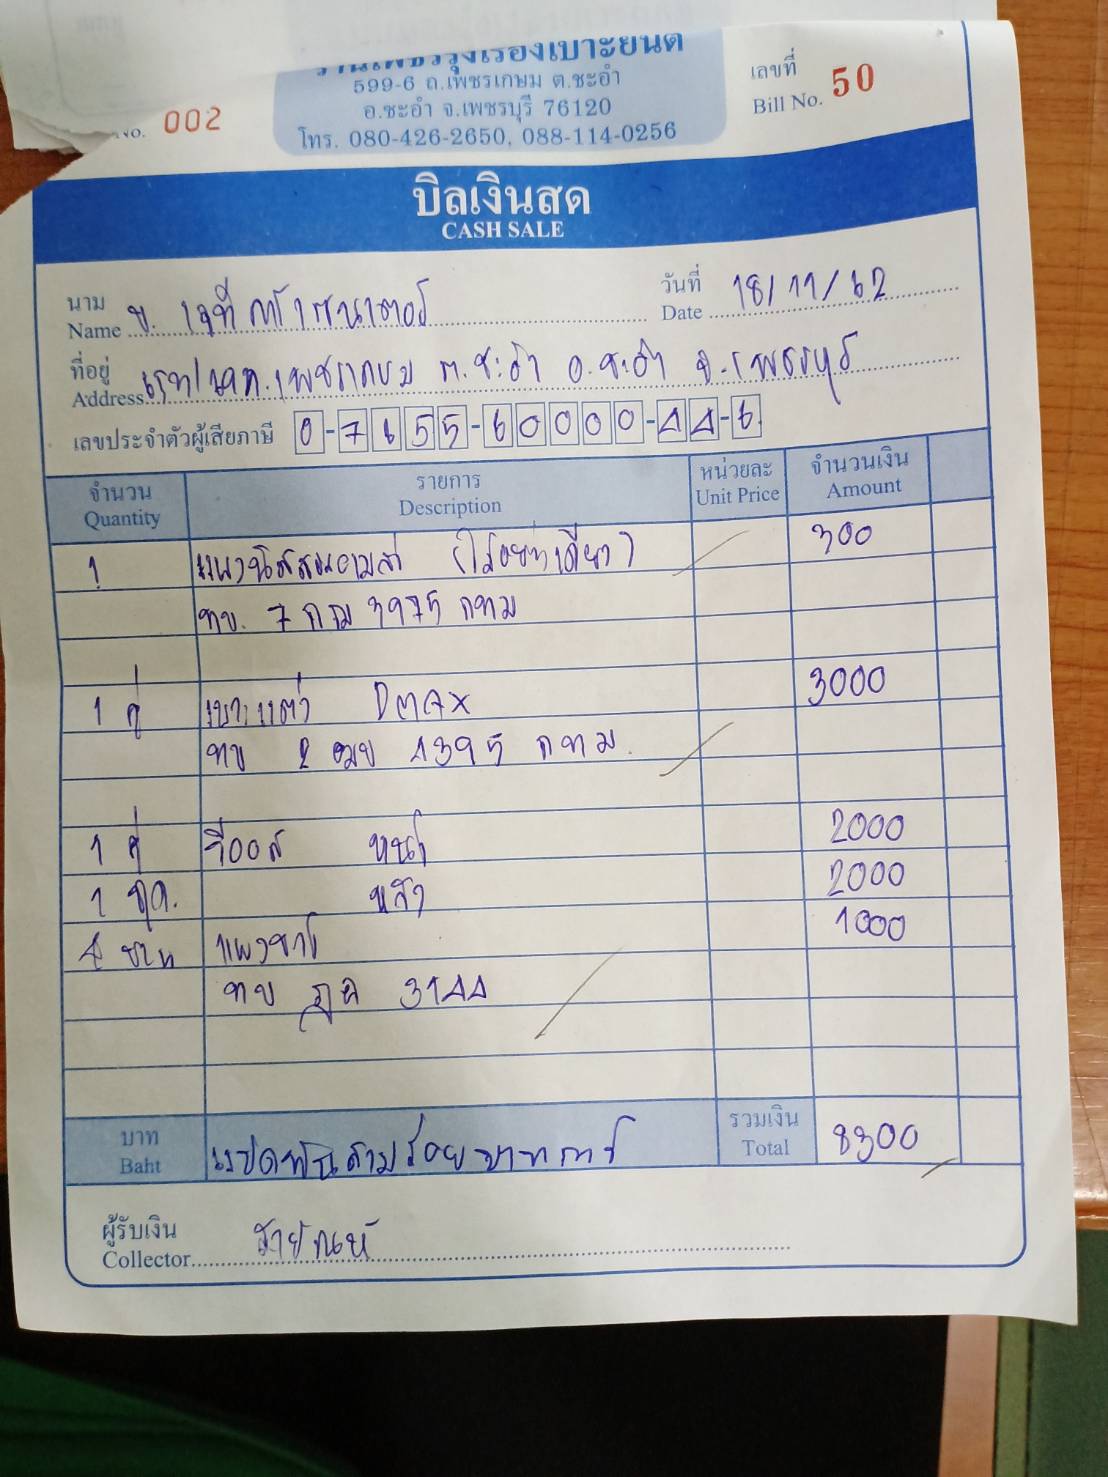 ร้านเพชรรุ่งเรืองเบาะยนต์
599-6 ถ.เพชรเกษม ต.ชะอำ
อ.ชะอำ จ.เพชรบุรี 76120
โทร. 080-426-2650, 088-114-0256
No. 002
เลขที่
Bill No. 50
บิลเงินสด
CASH SALE
นาม
Name บ. เจที
วันที่
Date 18/11/62
ที่อยู่
Address ถ.เพชรเกษม ต.ชะอำ อ.ชะอำ จ.เพชรบุรี
เลขประจำตัวผู้เสียภาษี 0-7655-60000-44-6
จำนวน รายการ หน่วยละ จำนวนเงิน
Quantity Description Unit Price Amount
1 300
ทบ. 7 กฌ 3975 กทม
1 คู่ เบาะแต่ง DMAX 3000
ทบ 2 ฒข 4395 กทม.
1 คู่ หน้า 2000
1 ชุด. หลัง 2000
4 บาน แผงข้าง 1000
ทบ 3144
บาท
Baht แปดพันสามร้อยบาทถ้วน
รวมเงิน
Total 8300
ผู้รับเงิน
Collector